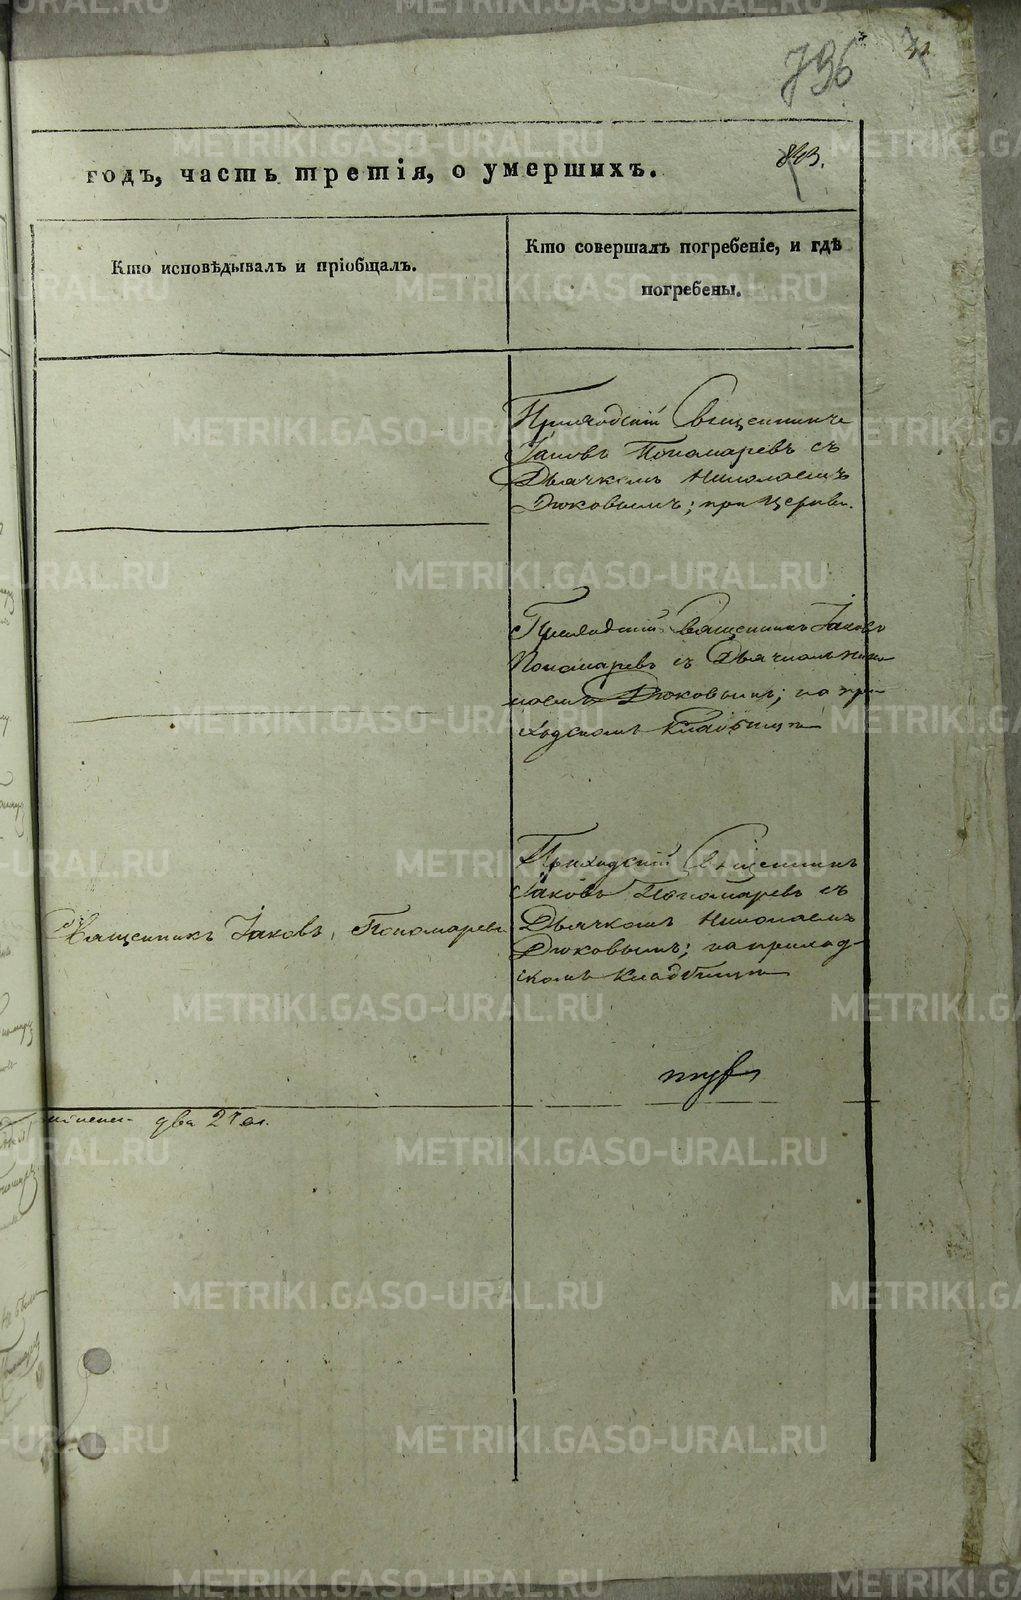 736
803.
годъ, часть третія, о умершихъ.
Кто исповѣдывалъ и пріобщалъ.
Кто совершалъ погребеніе, и гдѣ
погребены.
Приходскій Священникъ
Іаковъ Пономаревъ съ
Дьячкомъ Николаемъ
Дюковымъ; при Церкви.
Приходскій Священникъ Іаковъ
Пономаревъ съ Дьячкомъ Нико
лаемъ Дюковымъ; на при
ходскомъ кладбищѣ
Приходскій Священникъ
Іаковъ Пономаревъ съ
Дьячкомъ Николаемъ
Дюковымъ; на приход-
скомъ кладбищѣ
Священникъ Іаковъ Пономаревъ
два 2
METRIKI.GASO-URAL.RU